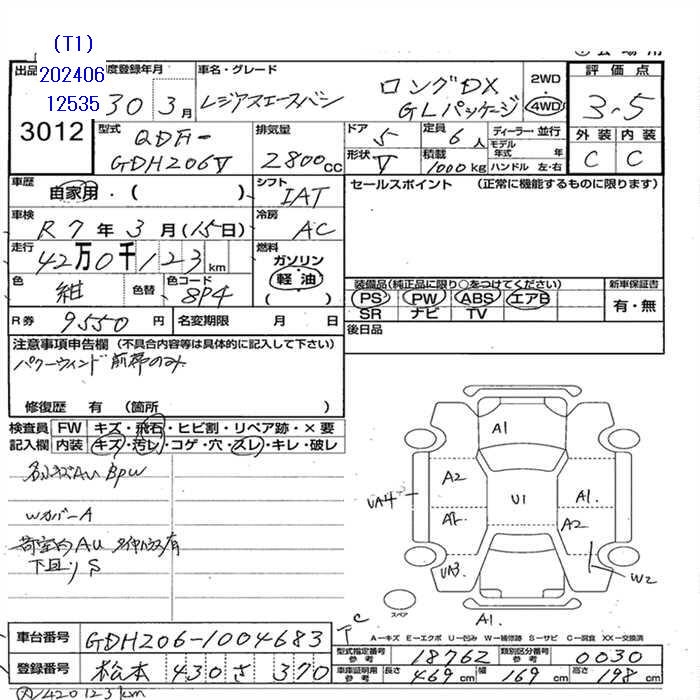 (T1)
202406
12535
3012
出品
度登録年月
30年3月
車名・グレード
レジアスエースバン
ロングDX
GLパッケージ
2WD
4WD
評価点
3.5
外装 内装
C C
型式
QDF-
GDH206V
排気量
2800cc
ドア 5
定員 6人
形状 V
積載 1000kg
ディーラー・並行
モデル年式 年
ハンドル 左・右
車歴
自家用・( )
シフト IAT
セールスポイント (正常に機能するものに限ります)
車検
R7年3月(15日)
冷房 AC
走行
42万0千123km
燃料
ガソリン
軽油
( )
色 紺 色替
色コード 8P4
装備品(純正品に限り○をつけてください)
PS PW ABS エアB
SR ナビ TV
新車保証書
有・無
R券 9550円
名変期限 月 日
後日品
注意事項申告欄(不具合内容等は具体的に記入して下さい)
パワーウィンド前席のみ
修復歴 有 (箇所 )
検査員 FW キズ・飛石・ヒビ割・リペア跡・×要
記入欄 内装 キズ・汚レ・コゲ・穴・スレ・キレ・破レ
WカバーA
下回りS
A1
A2
U1
A1.
A2
UA4
UA3
W2
A1.
スペア
A−キズ E−エクボ U−凹み W−補修跡 S−サビ C−腐食 XX−交換済
車台番号 GDH206-1004683
型式指定番号 参考 18762
類別区分番号 参考 0030
登録番号 松本 430 さ 370
車庫証明用 参考 長さ 469cm 幅 169cm 高さ 198cm
420123km